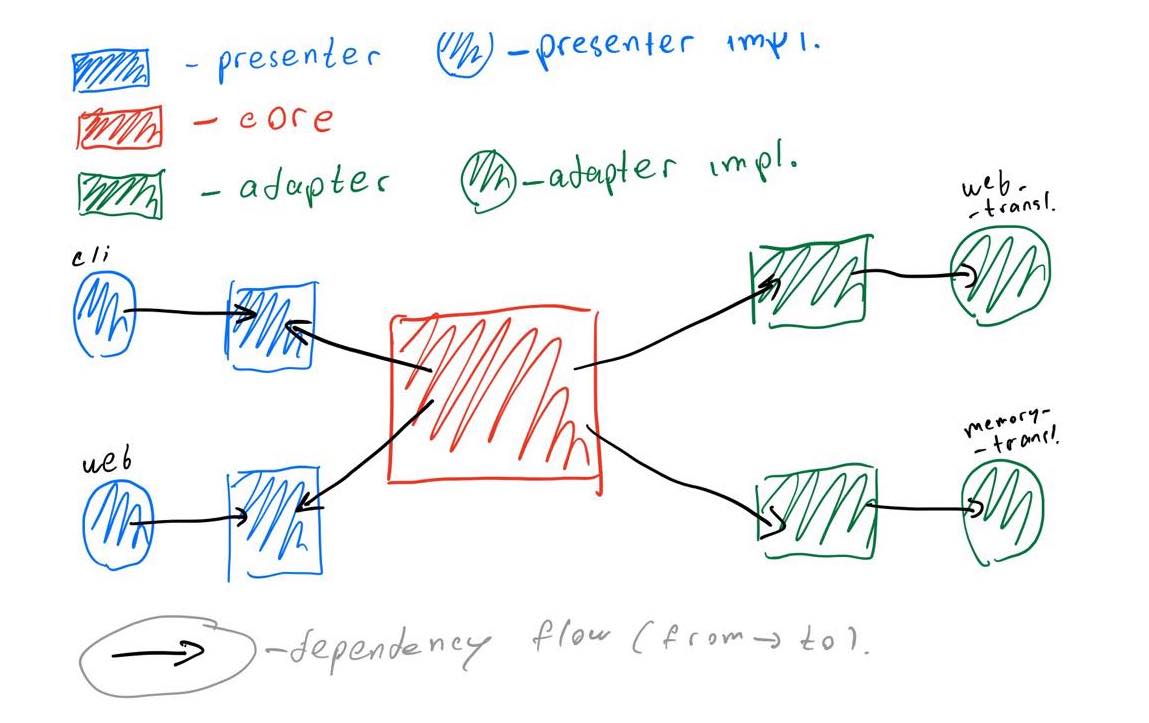 - presenter
- presenter impl.
- core
- adapter
- adapter impl.
web-
-transl.
cli
memory-
-transl.
web
- dependency flow (from → to).